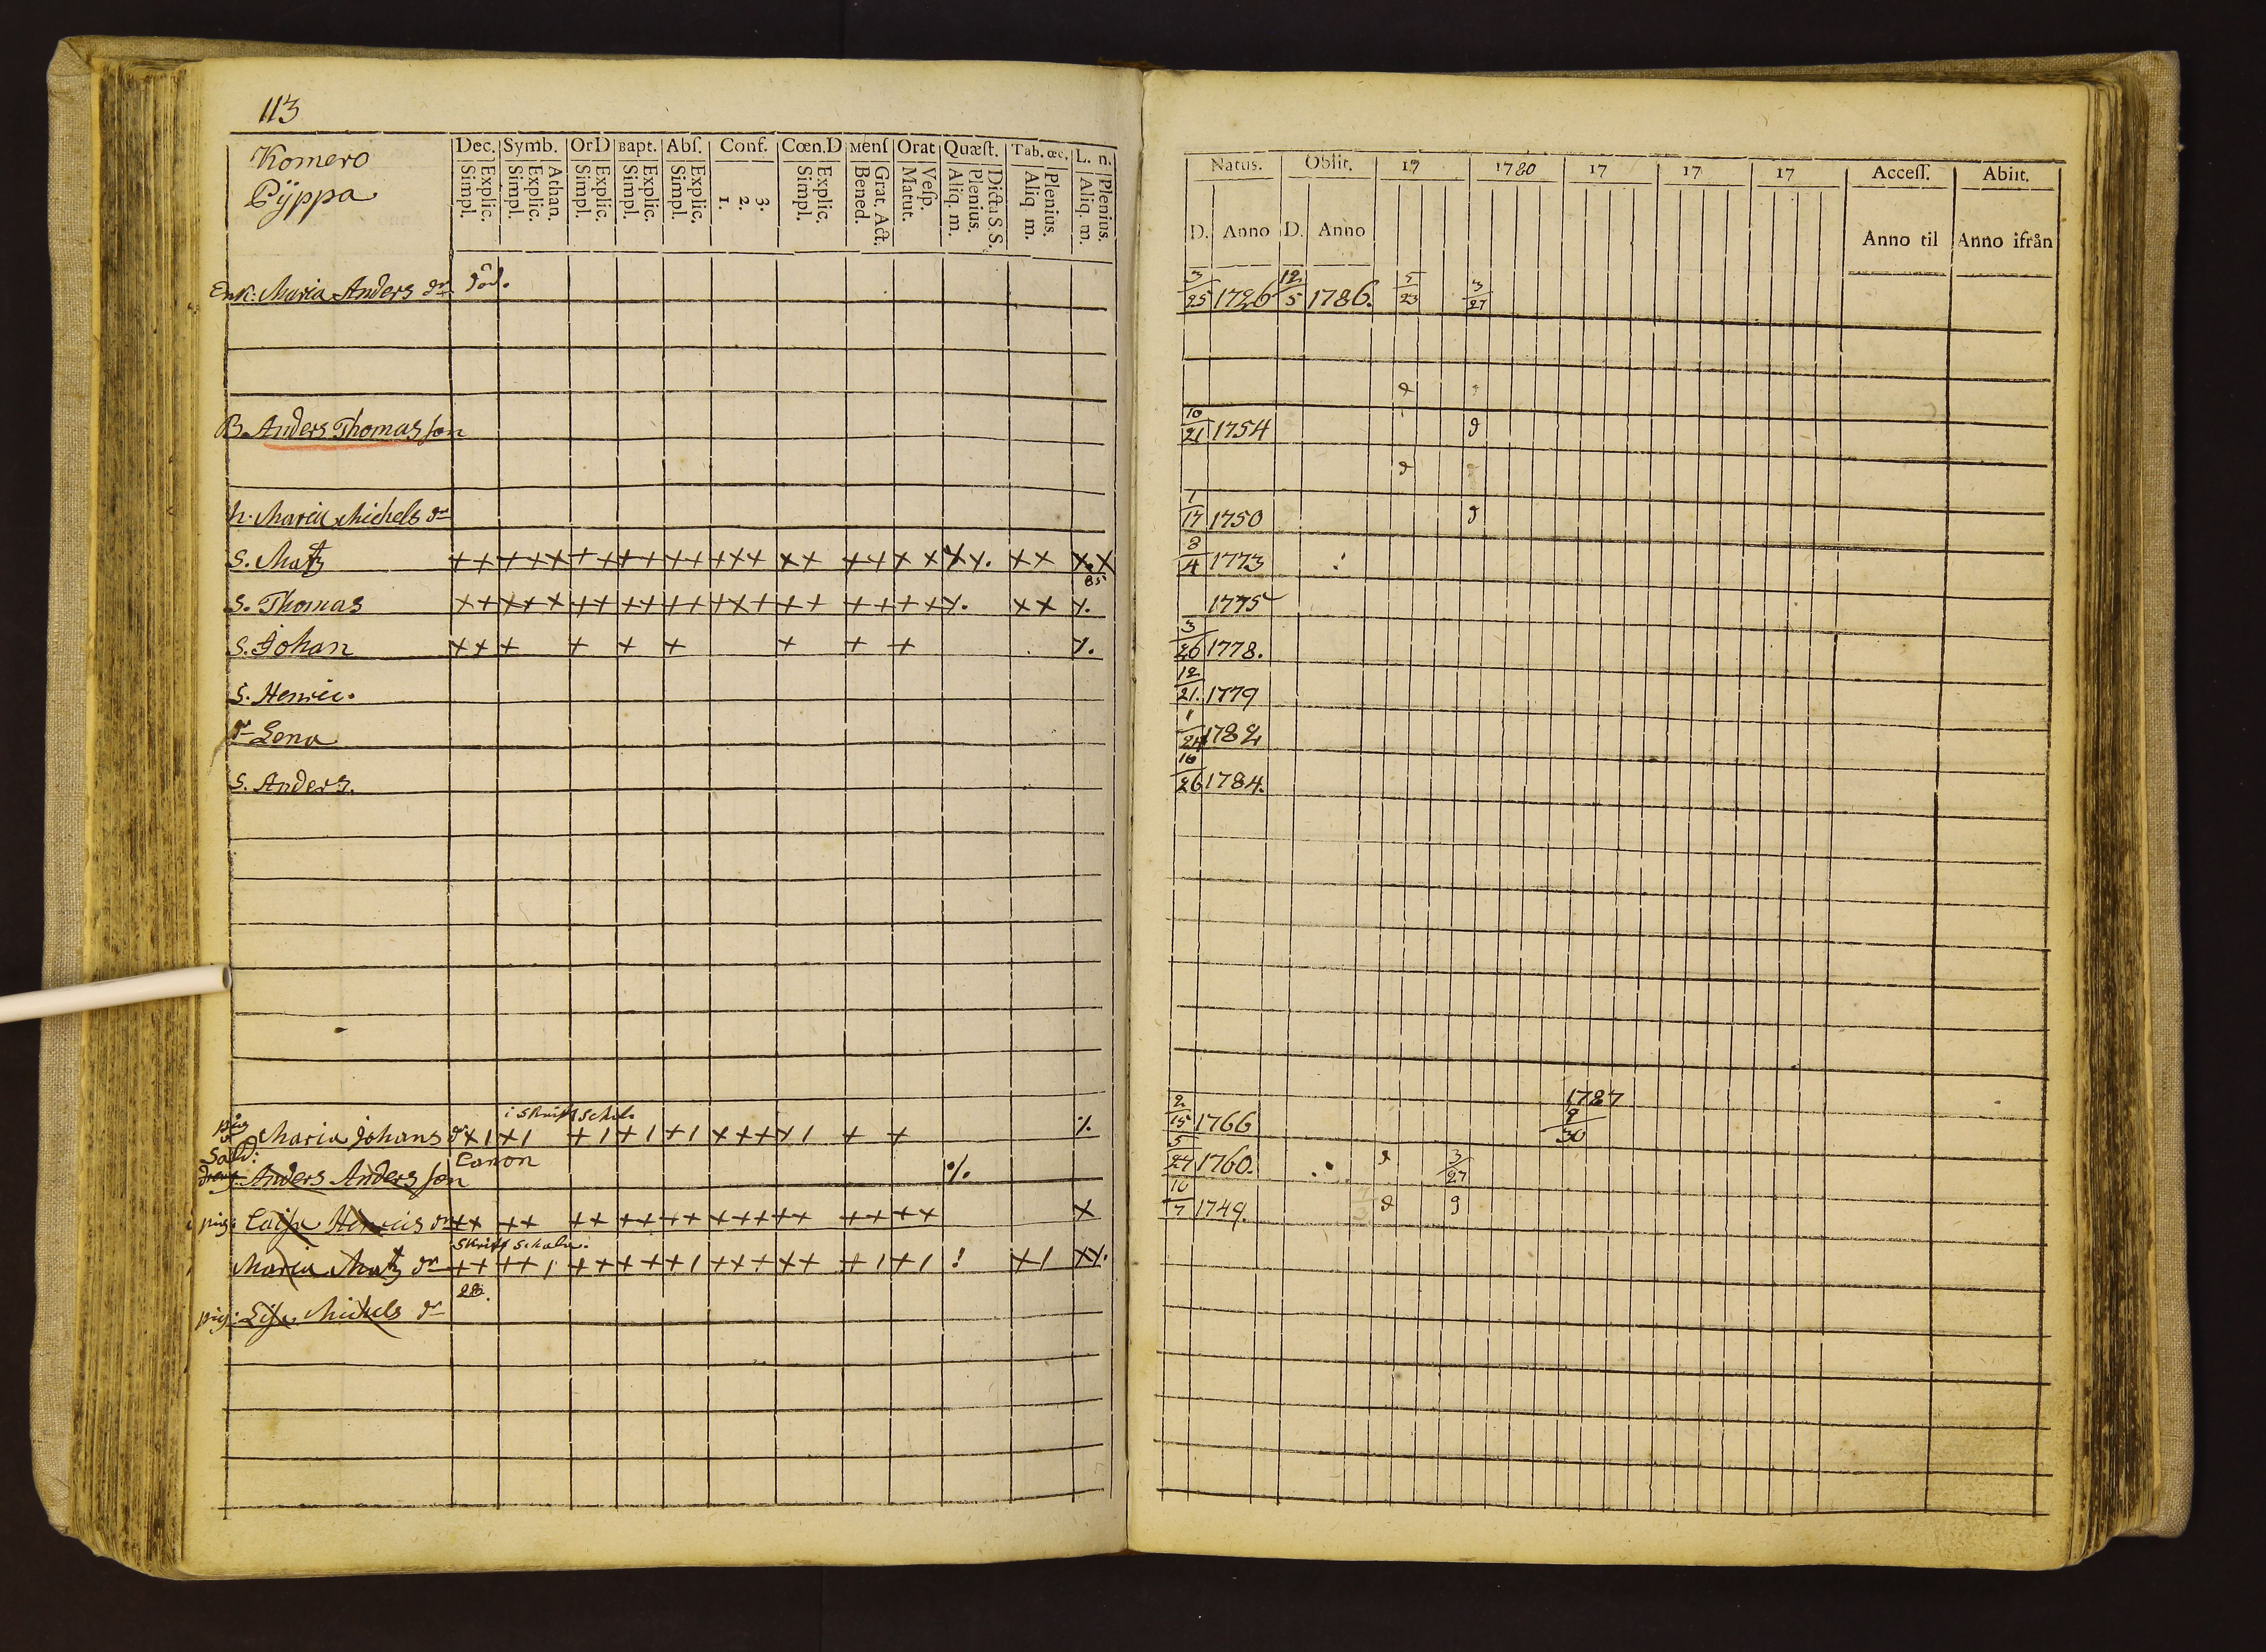 113
Komero
Pÿppa
Dec. Symb. OrD Bapt. Abſ. Conf. Cœn.D Menſ Orat Quæſt. Tab. œc. L. n.
Simpl. Explic. Simpl. Explic. Athan. Simpl. Explic. Simpl. Explic. Simpl. Explic. 1. 2. 3. Simpl. Explic. Bened. Grat. Act. Matut. Veſp. Aliq. m. Plenius. Dicta S.S. Aliq. m. Plenius. Aliq. m. Plenius.
Natus. Obiit. 17 1780 17 17 17 Acceſſ. Abiit.
D. Anno D. Anno Anno til Anno ifrån
Enk: Maria Anders dr död. 3/25 1726 12/5 1786. 5/23 3/27
B. Anders Thomas ſon 10/21 1754
h. Maria Michels dr 1/17 1750
S. Matz ++ +++ ++ ++ ++ +++ ++ ++ ++ ++. ++ +.+ 85 8/4 1773
S. Thomas ++ +++ ++ ++ ++ +++ ++ ++ ++ +. ++ +. 1775
S. Johan ++ + + + + + + + +. 3/26 1778.
S. Henric. 12/21. 1779
dr Lena 1/24 1782
S. Anders. 10/26 1784.
i Skrift Schol.
pig Maria Johans dr +1 +1 +1 +1 +1 +++ +1 + + 2/15 1766 1787 9/30
Sold: dreng Anders Anders ſon Canon 5/24 1760. 3/27
pig: Caisa Henrics dr ++ ++ ++ ++ ++ +++ ++ ++ ++ + 10/7 1749.
Skrift Schola.
Maria Matz dr ++ ++1 ++ ++ +1 +++ ++ +1 +1 ! +1 ++.
28.
pig: Lisa Michels dr